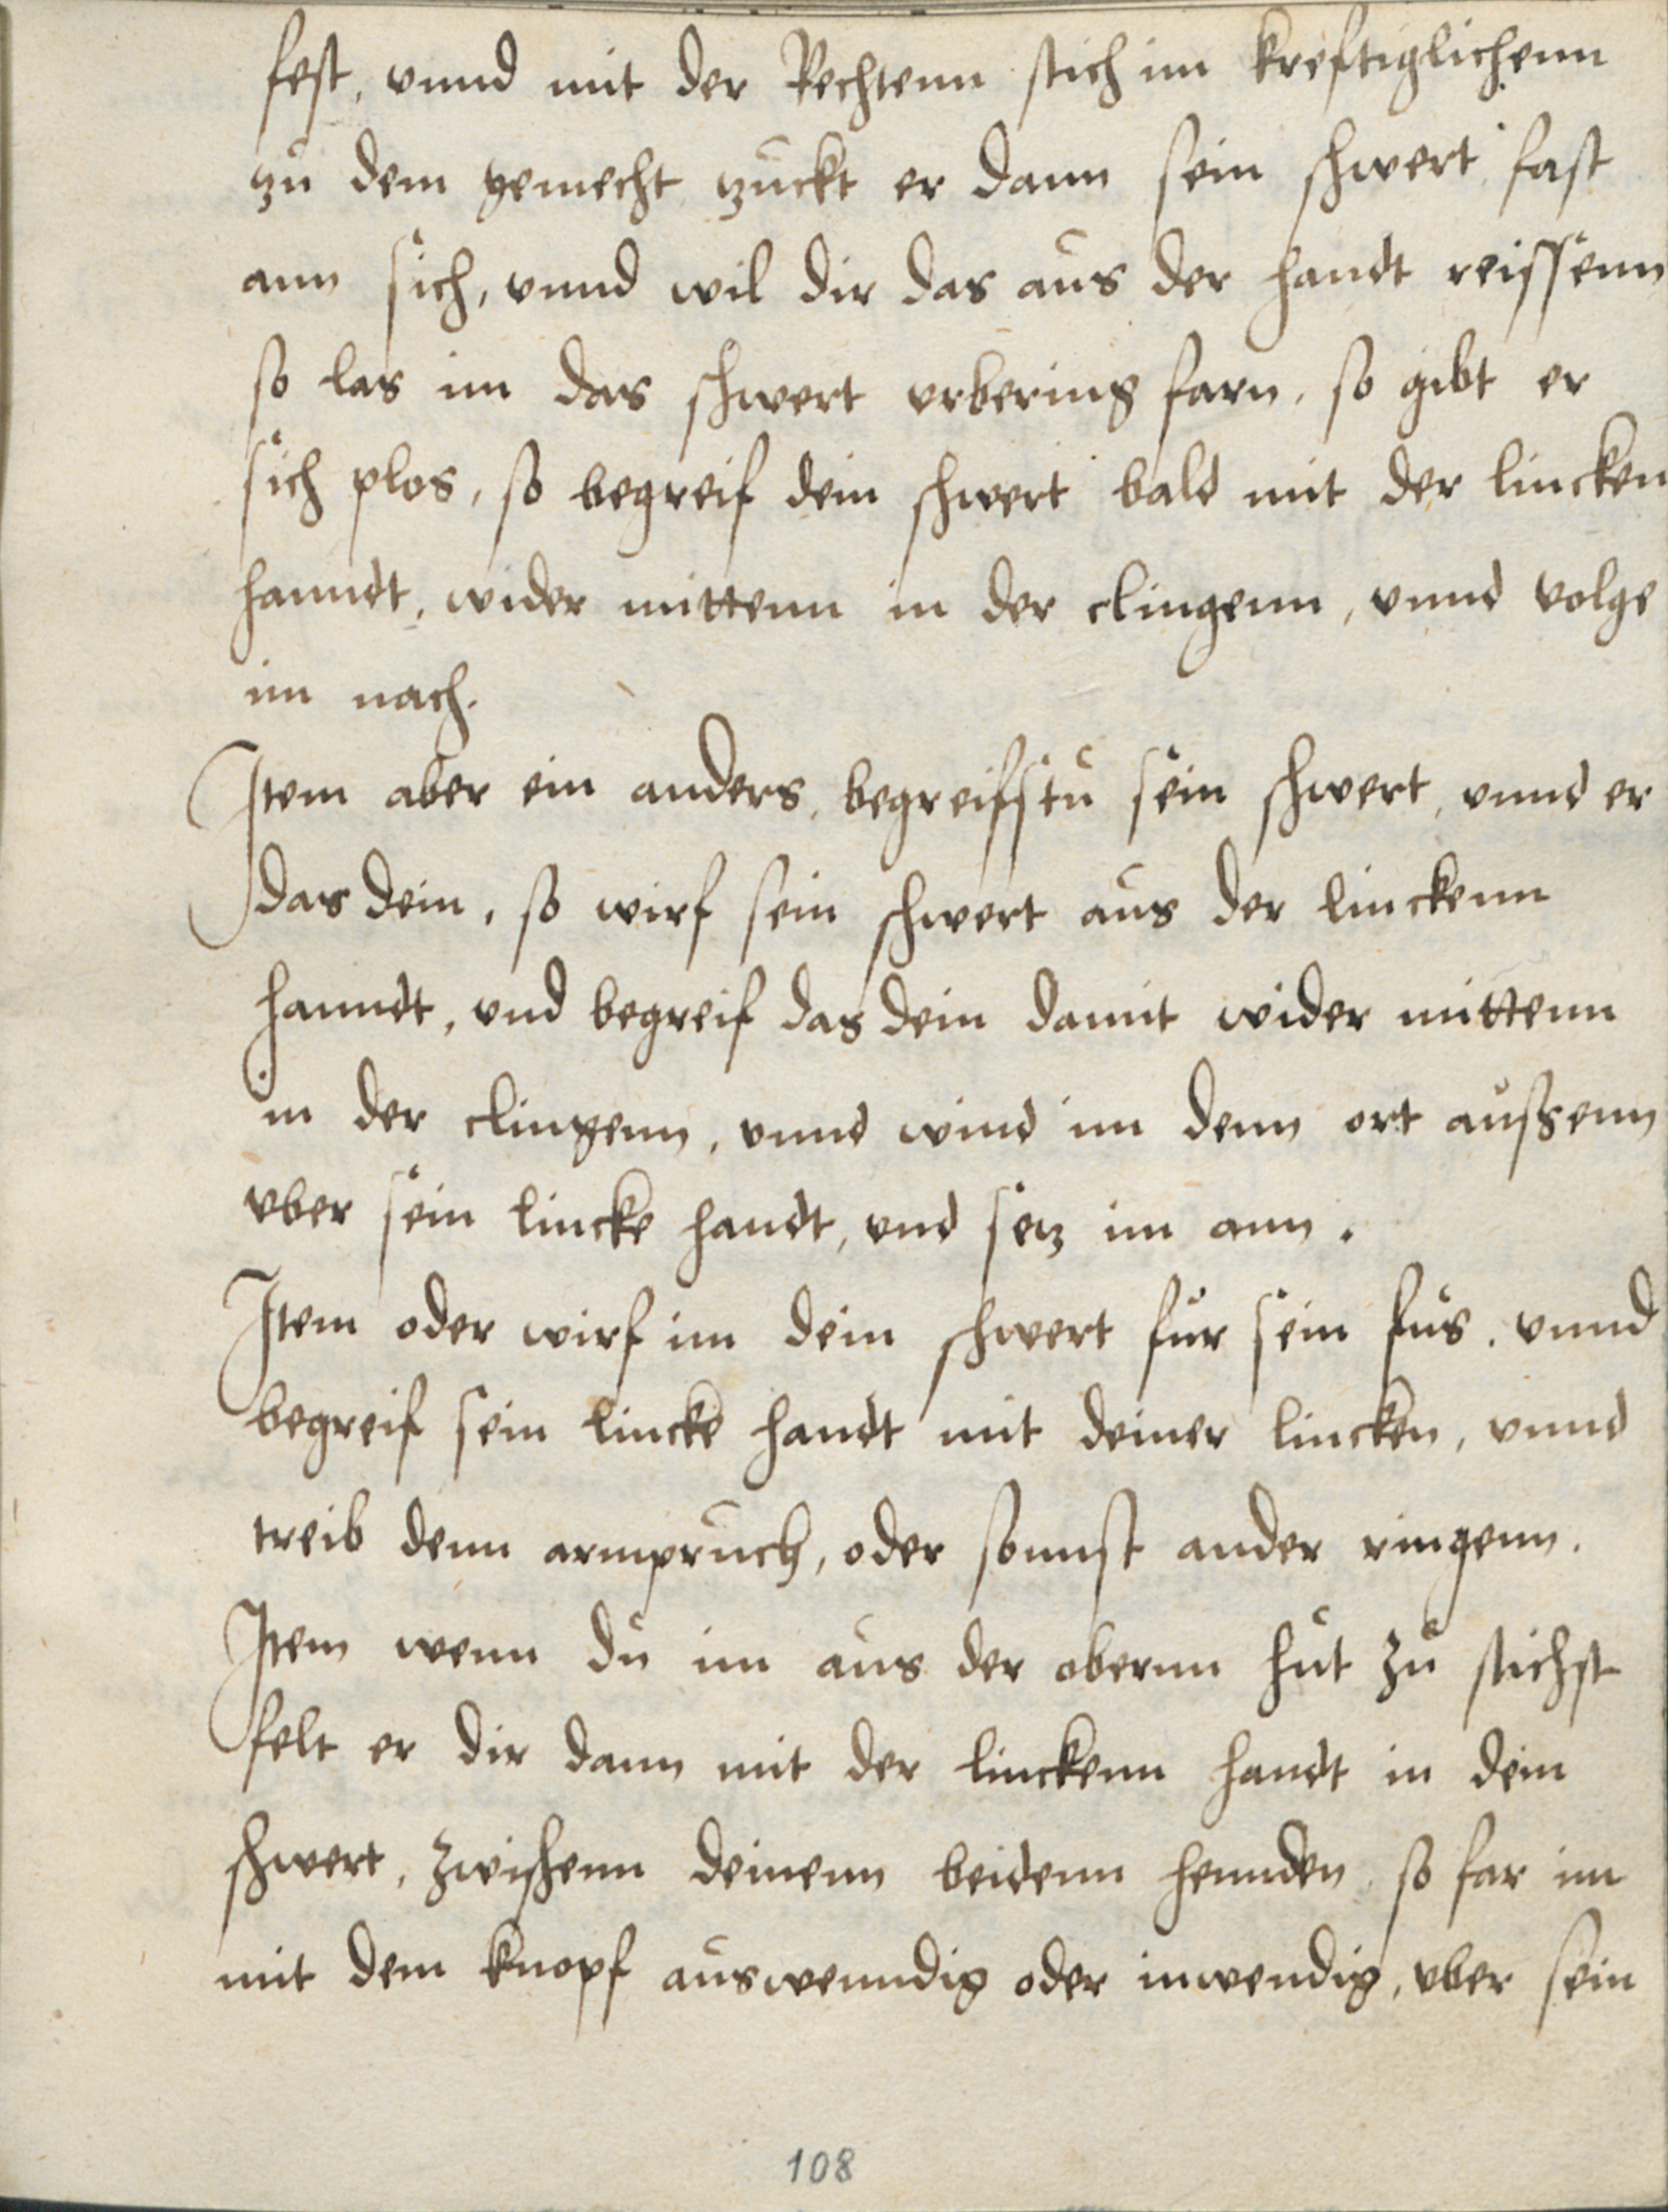 fest, vnnd mit der Rechtenn stich im kreftiglichenn
zu dem gemecht zuckt er dann sein schwert fast
ann sich, vnnd wil dir das aus der handt reissenn
so las im das schwert vrbering farn, so gibt er
sich plos, so begreif dein schwert bald mit der lincken
hanndt, wider mittenn in der clingenn, vnnd volge
im nach.
Item aber ein anders, begreifstu sein schwert, vnnd er
das dein, so wirf sein schwert aus der linckenn
hanndt, vnd begreif das dein damit wider mittenn
in der clingenn, vnnd wind im denn ort aussenn
vber sein lincke handt, vnd setz im ann.
Item oder wirf im dein schwert fur sein fus, vnnd
begreif sein lincke handt mit deiner lincken, vnnd
treib denn armpruch, oder sonnst ander ringenn.
Item wenn du im aus der obernn hut zu stichst
felt er dir dann mit der linckenn handt in dein
schwert, zwischenn deinenn beidenn hennden, so far im
mit dem knopf auswenndig oder inwendig, vber sein
108